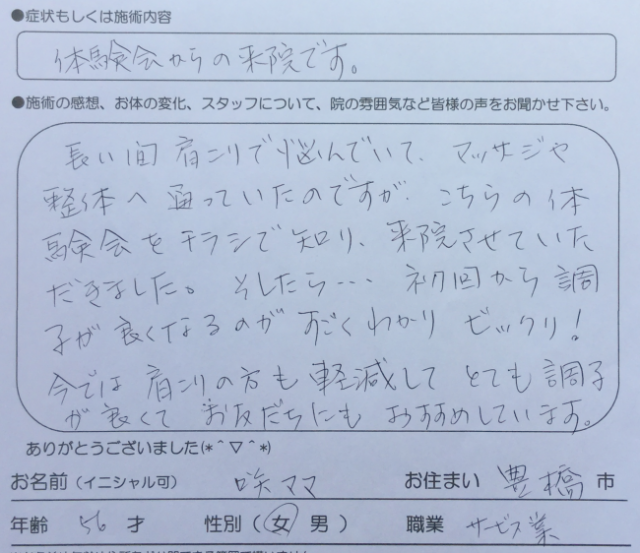 ●症状もしくは施術内容
体験会からの来院です。
●施術の感想、お体の変化、スタッフについて、院の雰囲気など皆様の声をお聞かせ下さい。
長い間 肩こりで悩んでいて、マッサージや
整体へ通っていたのですが、こちらの体
験会をチラシで知り、来院させていた
だきました。そしたら… 初回から調
子が良くなるのがすごくわかり ビックリ!
今では肩こりの方も軽減して とても調子
が良くて お友だちにも おすすめしています。
ありがとうございました(*^▽^*)
お名前(イニシャル可) 咲ママ お住まい 豊橋 市
年齢 56 才 性別(女 男) 職業 サービス業